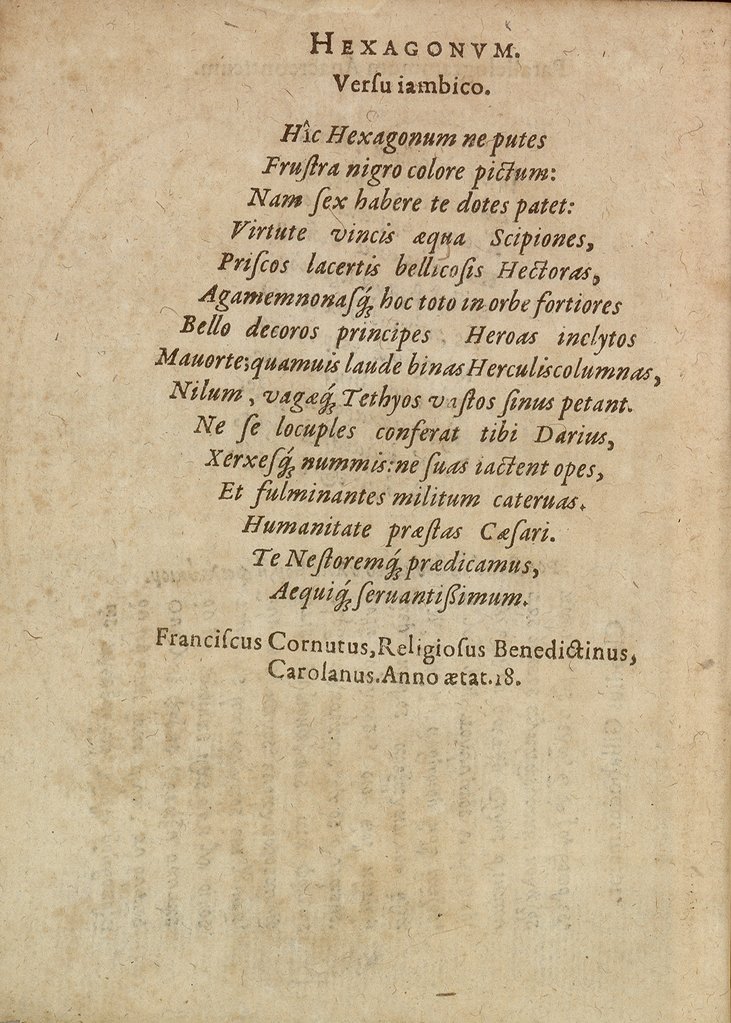 HEXAGONVM.
Verſu iambico.
Hîc Hexagonum ne putes
Fruſtra nigro colore pictum:
Nam ſex habere te dotes patet:
Virtute vincis æqua Scipiones,
Priſcos lacertis bellicoſis Hectoras,
Agamemnonaſq́; hoc toto in orbe fortiores
Bello decoros principes Heroas inclytos
Mauorte; quamuis laude binas Herculis columnas,
Nilum, vagæq́; Tethyos vaſtos ſinus petant.
Ne ſe locuples conferat tibi Darius,
Xerxeſq́; nummis: ne ſuas iactent opes,
Et fulminantes militum cateruas.
Humanitate præſtas Cæſari.
Te Neſtoremq́; prædicamus,
Aequiq́; ſeruantiſſimum.
Franciſcus Cornutus, Religioſus Benedictinus,
Carolanus. Anno ætat. 18.